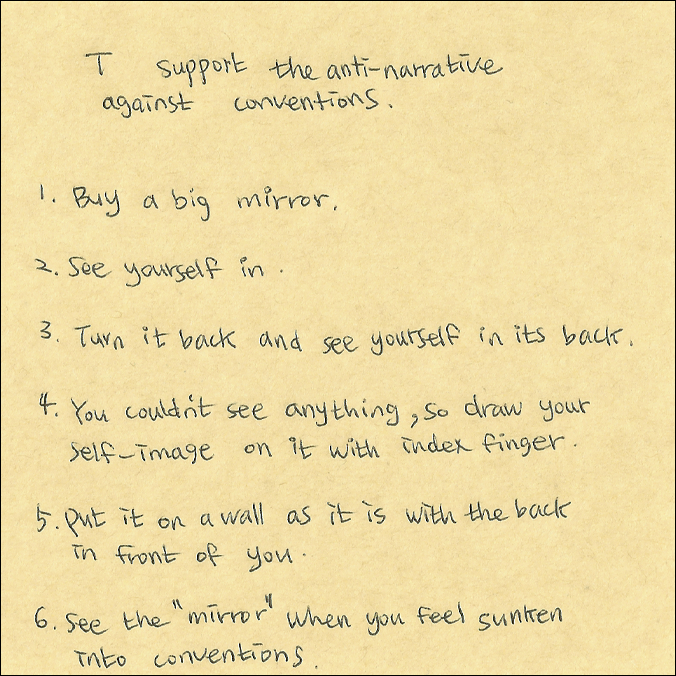 I support the anti-narrative
against conventions.
1. Buy a big mirror.
2. See yourself in.
3. Turn it back and see yourself in its back.
4. You couldn't see anything, so draw your
self-image on it with index finger.
5. Put it on a wall as it is with the back
in front of you.
6. See the "mirror" when you feel sunken
into conventions.